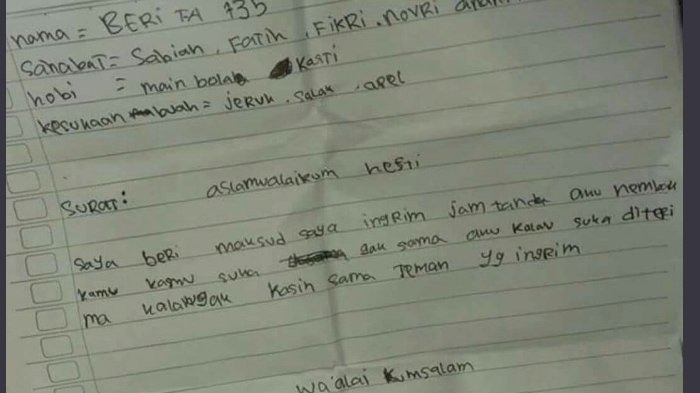 nama = BERI TA 735
Sahabat = Sabian, Fatih, Fikri, Novri
hobi = main bola Kasti
kesukaan buah = jeruk, salak, apel
Surat: aslamualaikum hesti
saya beri maksud saya ingrim jam tandt anu nembak
kamu kamu suka gak sama anu kalau suka diteri
ma kalau gak kasih sama teman yg ingrim
wa'alai kumsalam